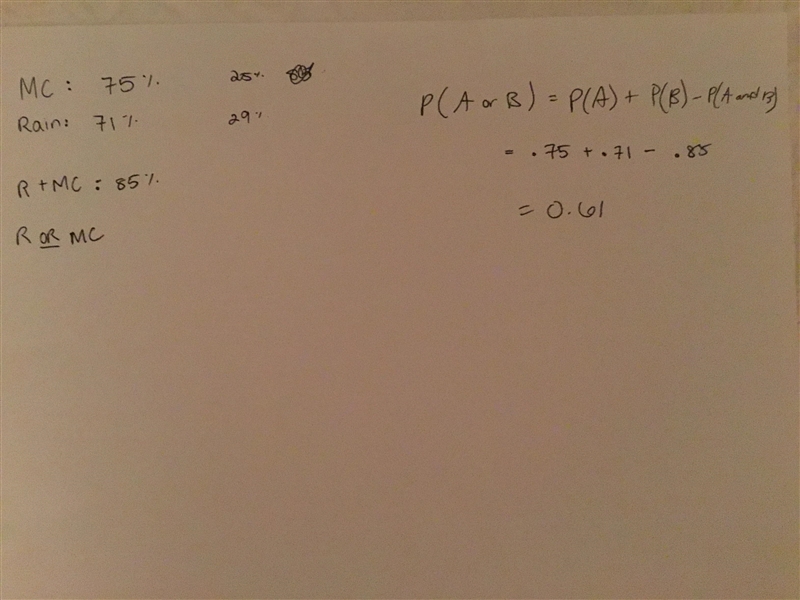 MC: 75% 25%
Rain: 71% 29%
R+MC: 85%
R OR MC
P(A or B) = P(A) + P(B) - P(A and B)
= .75 + .71 - .85
= 0.61